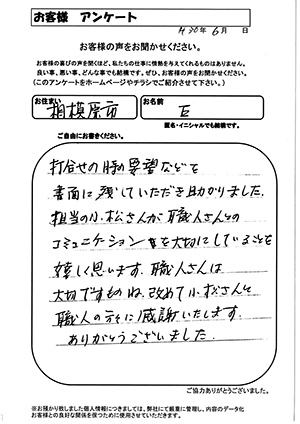 お客様 アンケート
H30年6月 日
お客様の声をお聞かせください。
お客様の喜びの声を聞くほど、私たちの仕事に情熱を与えてくれるものはありません。
良い事、悪い事、どんな事でも結構です。ぜひ、お客様の声をお聞かせください。
(このアンケートをホームページやチラシでご紹介させて下さい。)
お住まい 相模原市 お名前 E
匿名・イニシャルでも結構です。
ご自由にお書きください。
打合せの時の要望などを
書面に残していただき助かりました。
担当の小松さんが職人さんとの
コミュニケーションを大切にしていることを
嬉しく思います。職人さんは
大切ですものね。改めて小松さんと
職人の方々に感謝いたします。
ありがとうございました。
ご協力ありがとうございました。
※お預かり致しました個人情報につきましては、弊社にて厳重に管理し、内容のデータ化
お客様との良好な関係を保つために使用させていただきます。